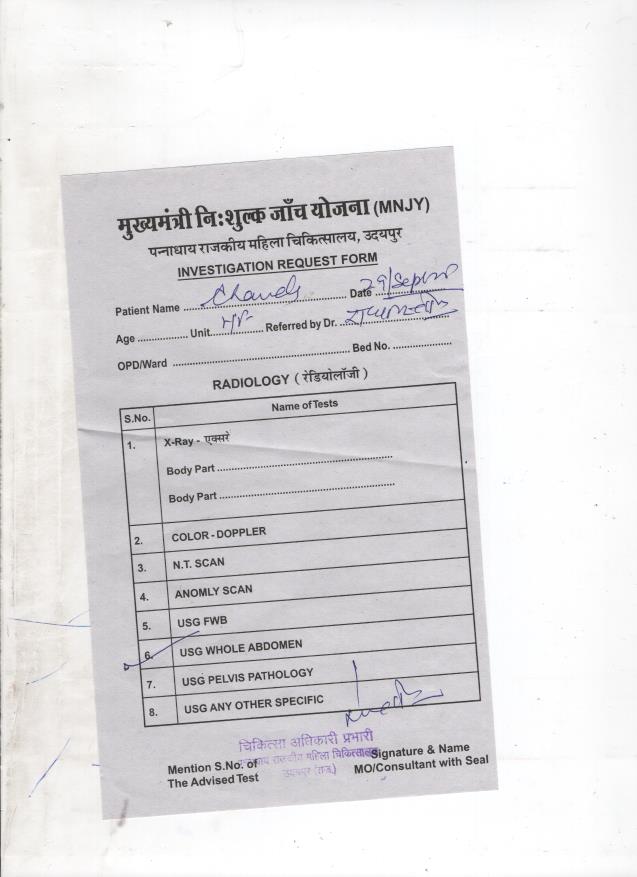 मुख्यमंत्री नि:शुल्क जाँच योजना (MNJY)
पन्नाधाय राजकीय महिला चिकित्सालय, उदयपुर
INVESTIGATION REQUEST FORM
Patient Name ........................ Date 29/Sept
Age .................. Unit.................. Referred by Dr. ..................
OPD/Ward .................................................. Bed No. ..................
RADIOLOGY ( रेडियोलॉजी )
S.No. Name of Tests
1. X-Ray - एक्सरे
Body Part ..................................................
Body Part ..................................................
2. COLOR - DOPPLER
3. N.T. SCAN
4. ANOMLY SCAN
5. USG FWB
6. USG WHOLE ABDOMEN
7. USG PELVIS PATHOLOGY
8. USG ANY OTHER SPECIFIC
चिकित्सा अधिकारी प्रभारी
राजकीय महिला चिकित्सालय
उदयपुर (राज.)
Mention S.No. of Signature & Name
The Advised Test MO/Consultant with Seal